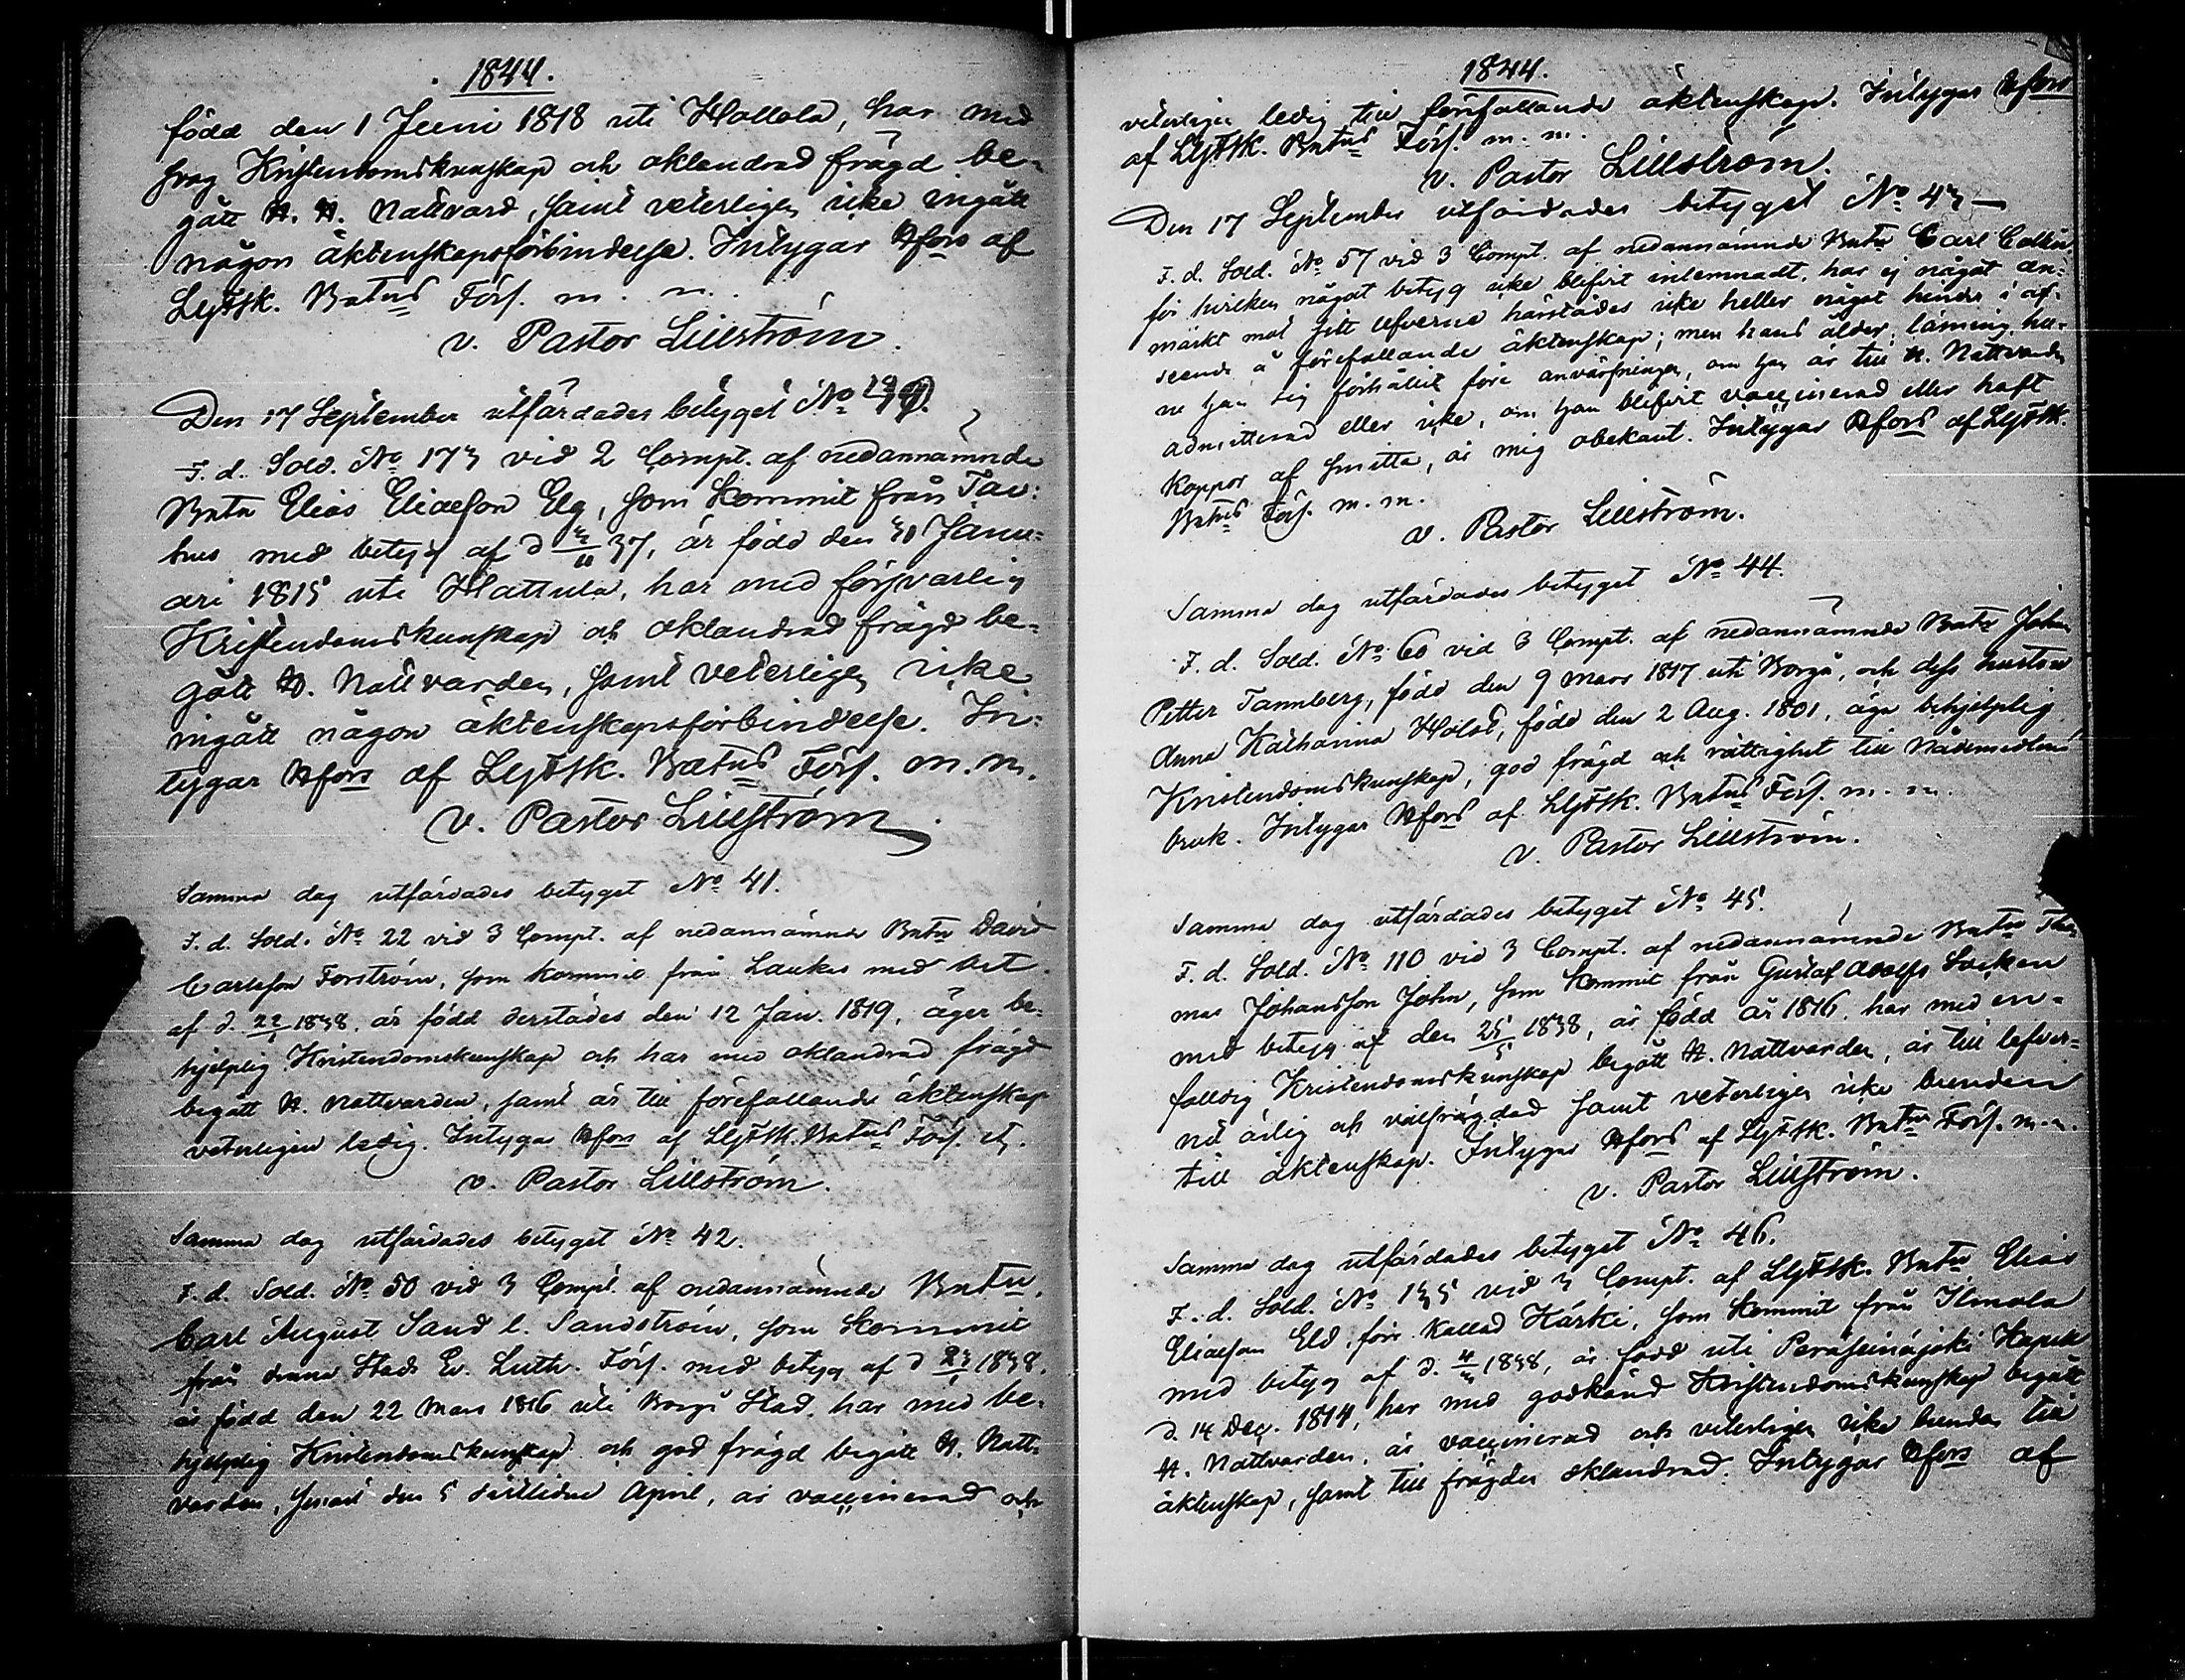 1844.
född den 1 Juni 1818 uti Hollola, har med
svag Kristendomskunskap och oklandrad frägd be-
gått H. H. Nattvard, samt veterligen icke ingått
någon äktenskapsförbindelse. Intygar Hfors af
LGFSk. Batns Förs. m. m.
v. Pastor Lillström.
Den 17 September utfärdades betyget No 40.
F. d. Sold. No 173 vid 2 Compt. af nedannämnde
Batn Elias Eliaesson Elg, som kommit från Tav:
hus med betyg af d 3/11 37, är född den 30 Janu-
ari 1815 uti Hattula, har med försvarlig
Kristendomskunskap och oklandrad frägd be-
gått H. Nattvarden, samt veterligen icke
ingått någon äktenskapsförbindelse. In-
tygar Hfors af LGFSk. Batns Förs. m. m.
v. Pastor Lillström
Samma dag utfärdades betyget No 41.
F. d. Sold. No 22 vid 3 Compt. af nedannämnde Batn David
Carlsson Forström, som kommit från Laukas med bet.
af d. 22/1 1838, är född derstädes den 12 Jan. 1819, äger be-
hjelplig Kristendomskunskap och har med oklandrad frägd
begått H. Nattvarden, samt är till förefallande äktenskap
veterligen ledig. Intygar Hfors af LGFSk. Batns Förs. etc.
v. Pastor Lillström.
Samma dag utfärdades betyget No 42.
F. d. Sold. No 50 vid 3 Compt. af nedannämnde Batn.
Carl August Sand l. Sandström, som kommit
från denna Stads Ev. Luth. Förs. med betyg af d 23/1 1838.
är född den 22 Mars 1816 uti Borgå Stad, har med be-
hjelplig Kristendomskunskap och god frägd begått H. Natt-
varden, senast den 5 sistlidne April, är vaccinerad och
1844.
veterligen ledig till förefallande äktenskap. Intygar Hfors
af LGFSk. Batns Förs. m. m.
v. Pastor Lillström.
Den 17 September utfärdades betyget No 43
F. d. Sold. No 57 vid 3 Compt. af nedannämnde Batn Carl
för hvilken något betyg icke blifvit inlemnadt, har ej något an-
märkt mot sitt lefverne härstädes icke heller något hinder i af-
seende å förefallande äktenskap; men hans ålder, läsning, hu-
ru han sig förhållit före anvärfningen, om han är till H. Nattvarden
admitterad eller icke, om han blifvit vaccinerad eller haft
koppor af smitta, är mig obekant. Intygar Hfors af LGFSk.
Batns Förs. m. m.
v. Pastor Lillström.
Samma dag utfärdades betyget No 44.
F. d. Sold. No 60 vid 3 Compt. af nedannämnde Batn John
Petter Tannberg, född den 9 Mars 1817 uti Borgå, och dess hustru
Anna Katharina Holst, född den 2 Aug. 1801, äga behjelplig
Kristendomskunskap, god frägd och rättighet till Nådemedlens
bruk. Intygar Hfors af LGFSk. Batns Förs. m. m.
v. Pastor Lillström.
Samma dag utfärdades betyget No 45.
F. d. Sold. No 110 vid 3 Compt. af nedannämnde Batn Tho-
mas Johansson John, som kommit från Gustaf Adolfs Socken
med betyg af den 25/5 1838, är född år 1816, har med en-
faldig Kristendomskunskap begått H. Nattvarden, är till lefver-
ne ärlig och välfrägdad samt veterligen icke bunden
till äktenskap. Intygar Hfors af LGFSk. Batns Förs. m. m.
v. Pastor Lillström.
Samma dag utfärdades betyget No 46.
F. d. Sold. No 135 vid 3 Compt. af LGFSk. Batn Elias
Eliaesson Eld, förr kallad Härki, som kommit från Ilmola
med betyg af d. 4/3 1838, är född uti Peräseinäjoki Kapell
d. 14 Dec. 1814, har med godkänd Kristendomskunskap begått
H. Nattvarden, är vaccinerad och veterligen icke bunden till
äktenskap, samt till frägden oklandrad. Intygar Hfors af